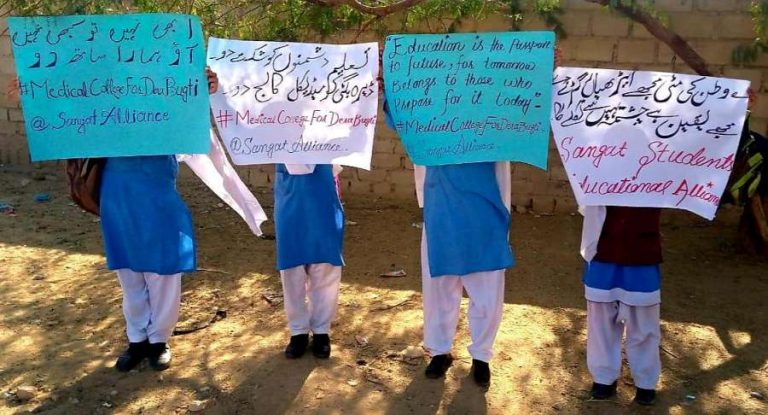 ابھی نہیں تو کبھی نہیں
آؤ ہمارا ساتھ دو
#MedicalCollegeForDeraBugti
@SangatAlliance
تعلیم دشمنوں کو شکست دو۔
ڈیرہ بگٹی کو میڈیکل کالج دو۔
#MedicalCollegeForDeraBugti
@SangatAlliance.
"Education is the Passport
to future, for tomorrow
Belongs to those who
Prepare for it today"
#MedicalCollegeForDeraBugti
@SangatAlliance
وطن کی مٹی مجھے
مجھے یقین ہے چشمہ یہیں سے
Sangat Students
Educational Alliance